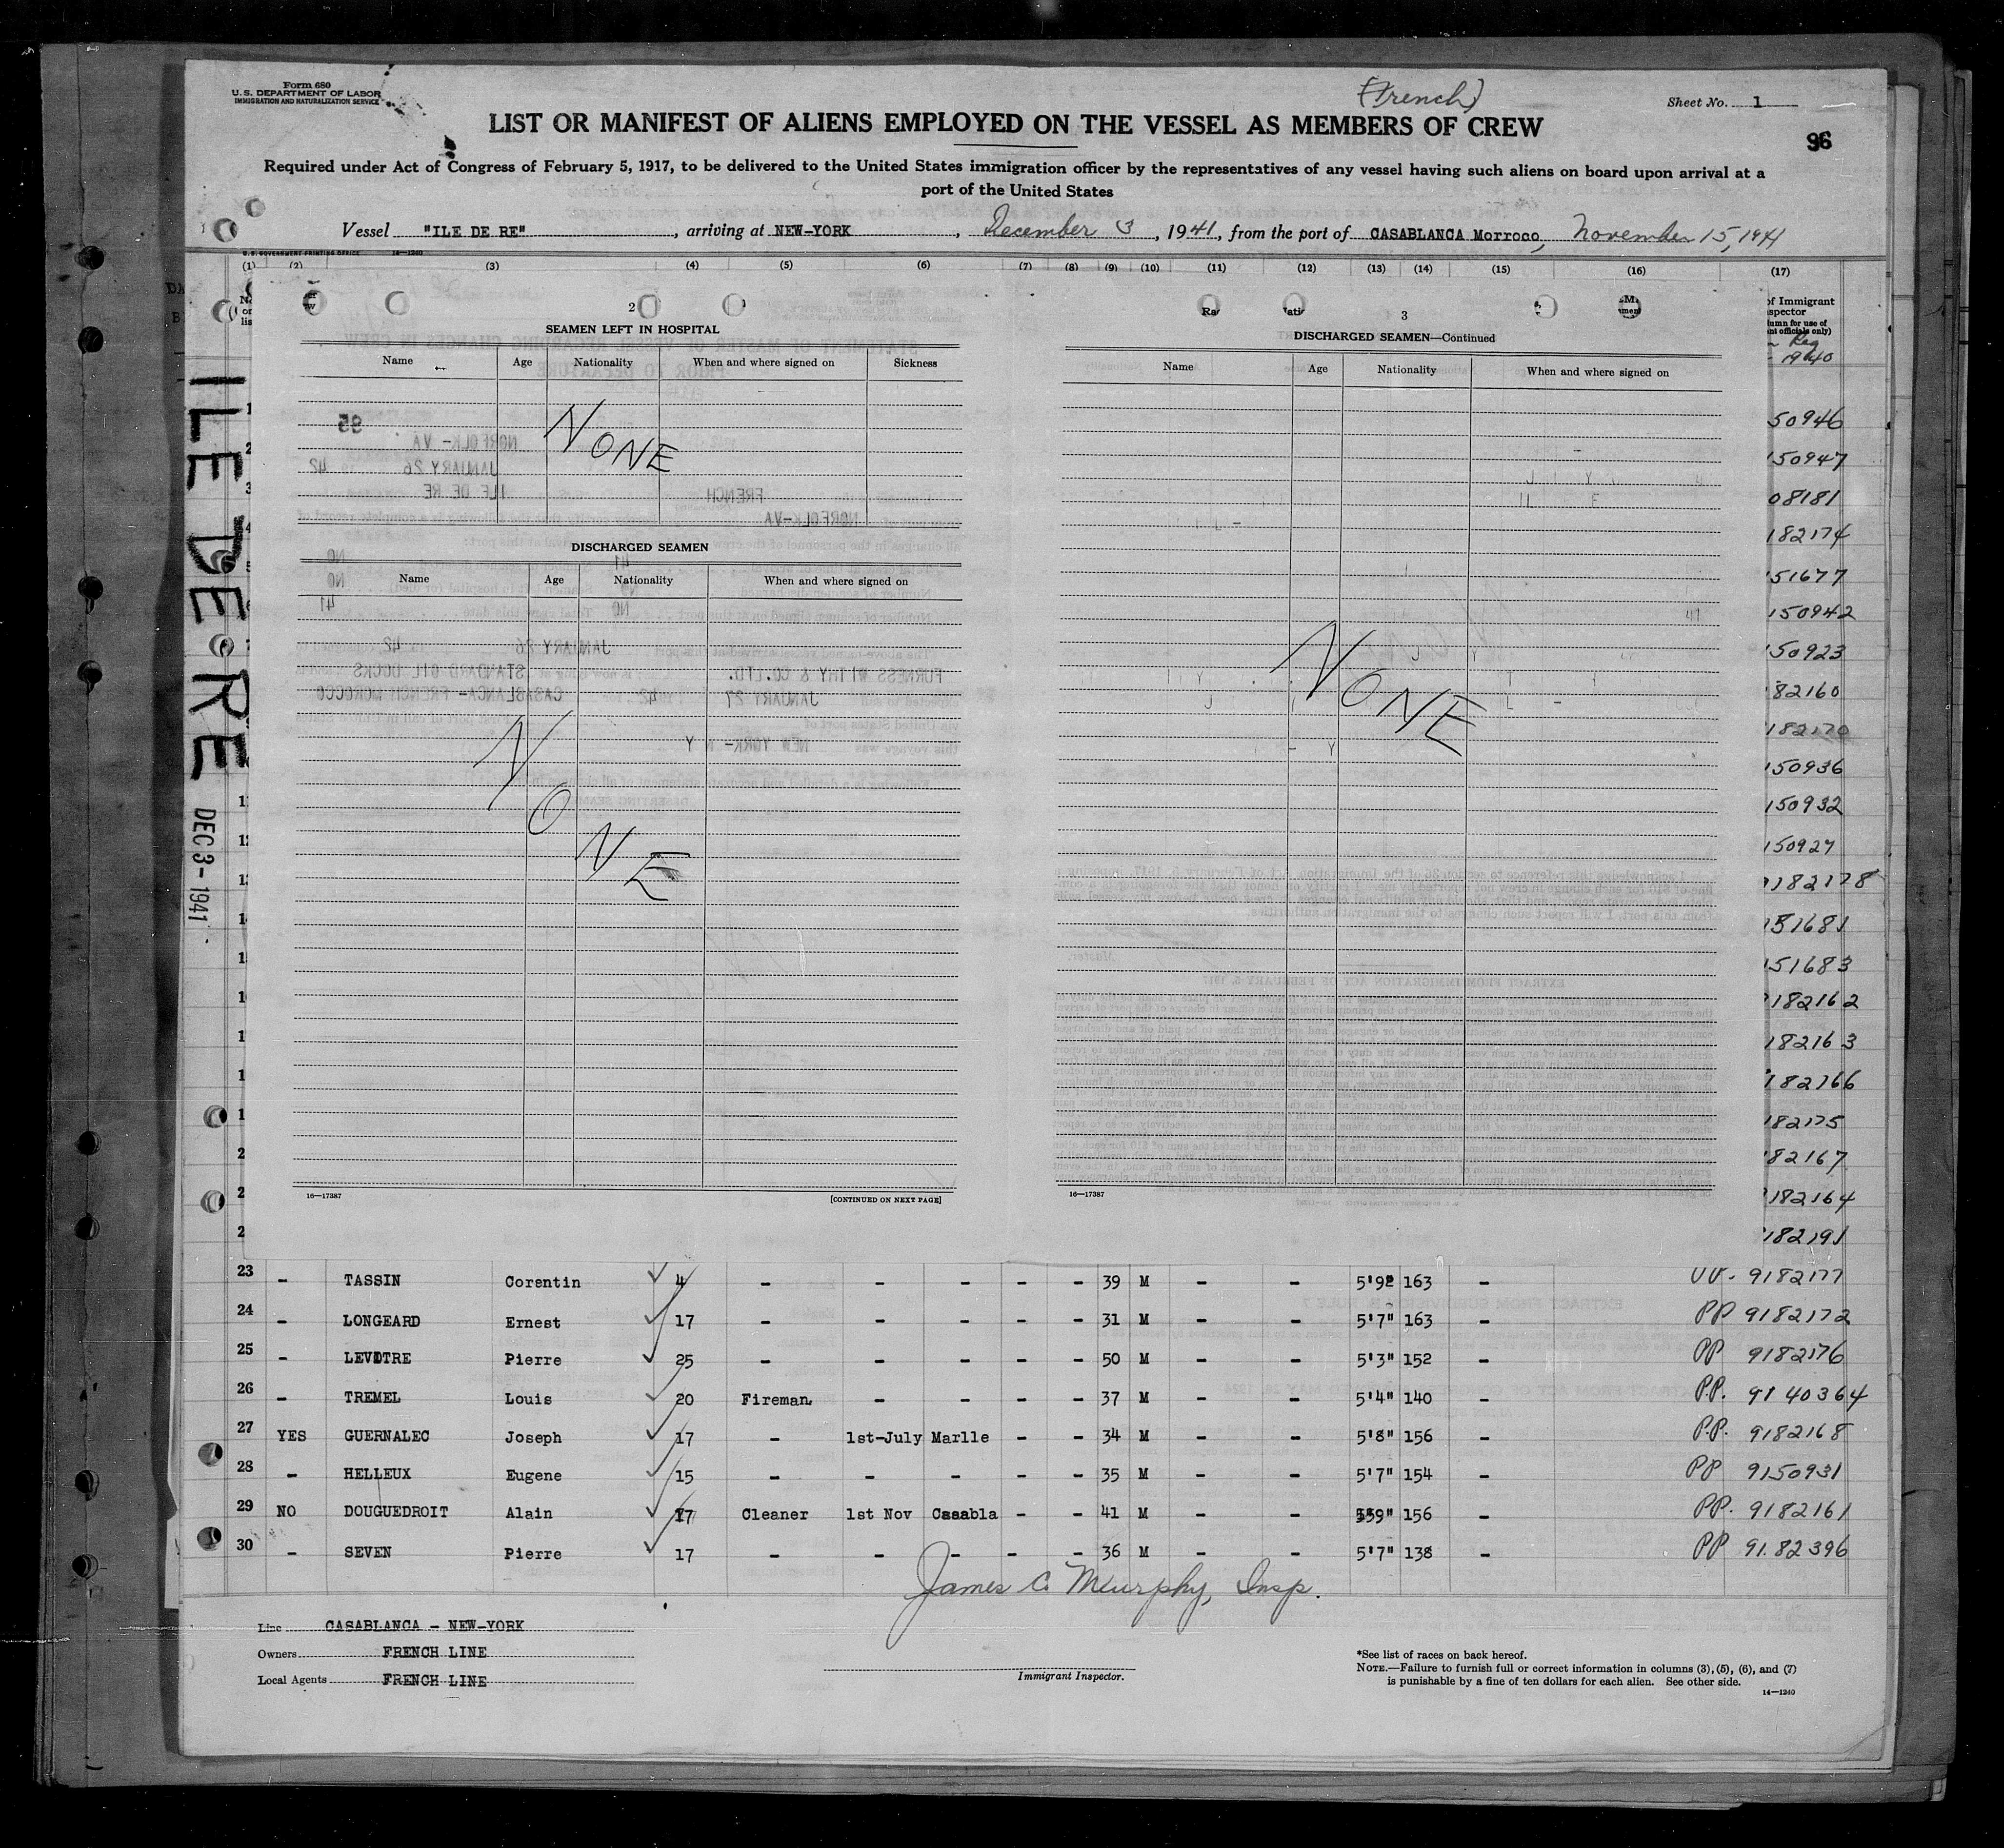 Form 680
U.S. DEPARTMENT OF LABOR
IMMIGRATION AND NATURALIZATION SERVICE
(French)
Sheet No. 1
LIST OR MANIFEST OF ALIENS EMPLOYED ON THE VESSEL AS MEMBERS OF CREW
96
Required under Act of Congress of February 5, 1917, to be delivered to the United States immigration officer by the representatives of any vessel having such aliens on board upon arrival at a
port of the United States
Vessel "ILE DE RE", arriving at NEW-YORK, December 3, 1941, from the port of CASABLANCA Morroco, November 15, 1941
U.S. GOVERNMENT PRINTING OFFICE 14-1240
(1) (2) (3) (4) (5) (6) (7) (8) (9) (10) (11) (12) (13) (14) (15) (16) (17)
of Immigrant
ILE DE RE DEC 3-1941
2
SEAMEN LEFT IN HOSPITAL
Name Age Nationality When and where signed on Sickness
NONE
DISCHARGED SEAMEN
Name Age Nationality When and where signed on
NONE
16—17387 [CONTINUED ON NEXT PAGE]
3
DISCHARGED SEAMEN—Continued
Name Age Nationality When and where signed on
NONE
16—17387
1940
50946
150947
08181
182174
151677
150942
150923
82160
182170
150936
150932
150927
182178
151681
151683
182162
182163
182166
182175
82167
182164
182191
23 - TASSIN Corentin 4 - - - - - 39 M - - 5'9" 163 - 9182177
24 - LONGEARD Ernest 17 - - - - - 31 M - - 5'7" 163 - PP 9182172
25 - LEVOTRE Pierre 25 - - - - - 50 M - - 5'3" 152 - PP 9182176
26 - TREMEL Louis 20 Fireman - - - - 37 M - - 5'4" 140 - P.P. 9140364
27 YES GUERNALEC Joseph 17 - 1st-July Marlle - - 34 M - - 5'8" 156 - P.P. 9182168
28 - HELLEUX Eugene 15 - - - - - 35 M - - 5'7" 154 - PP 9150931
29 NO DOUGUEDROIT Alain 17 Cleaner 1st Nov Casabla - - 41 M - - 5'9" 156 - PP. 9182161
30 - SEVEN Pierre 17 - - - - - 36 M - - 5'7" 138 - PP 91.82396
James C Murphy, Insp.
Line CASABLANCA - NEW-YORK
Owners FRENCH LINE
Local Agents FRENCH LINE
Immigrant Inspector.
*See list of races on back hereof.
NOTE.—Failure to furnish full or correct information in columns (3), (5), (6), and (7)
is punishable by a fine of ten dollars for each alien. See other side.
14—1240